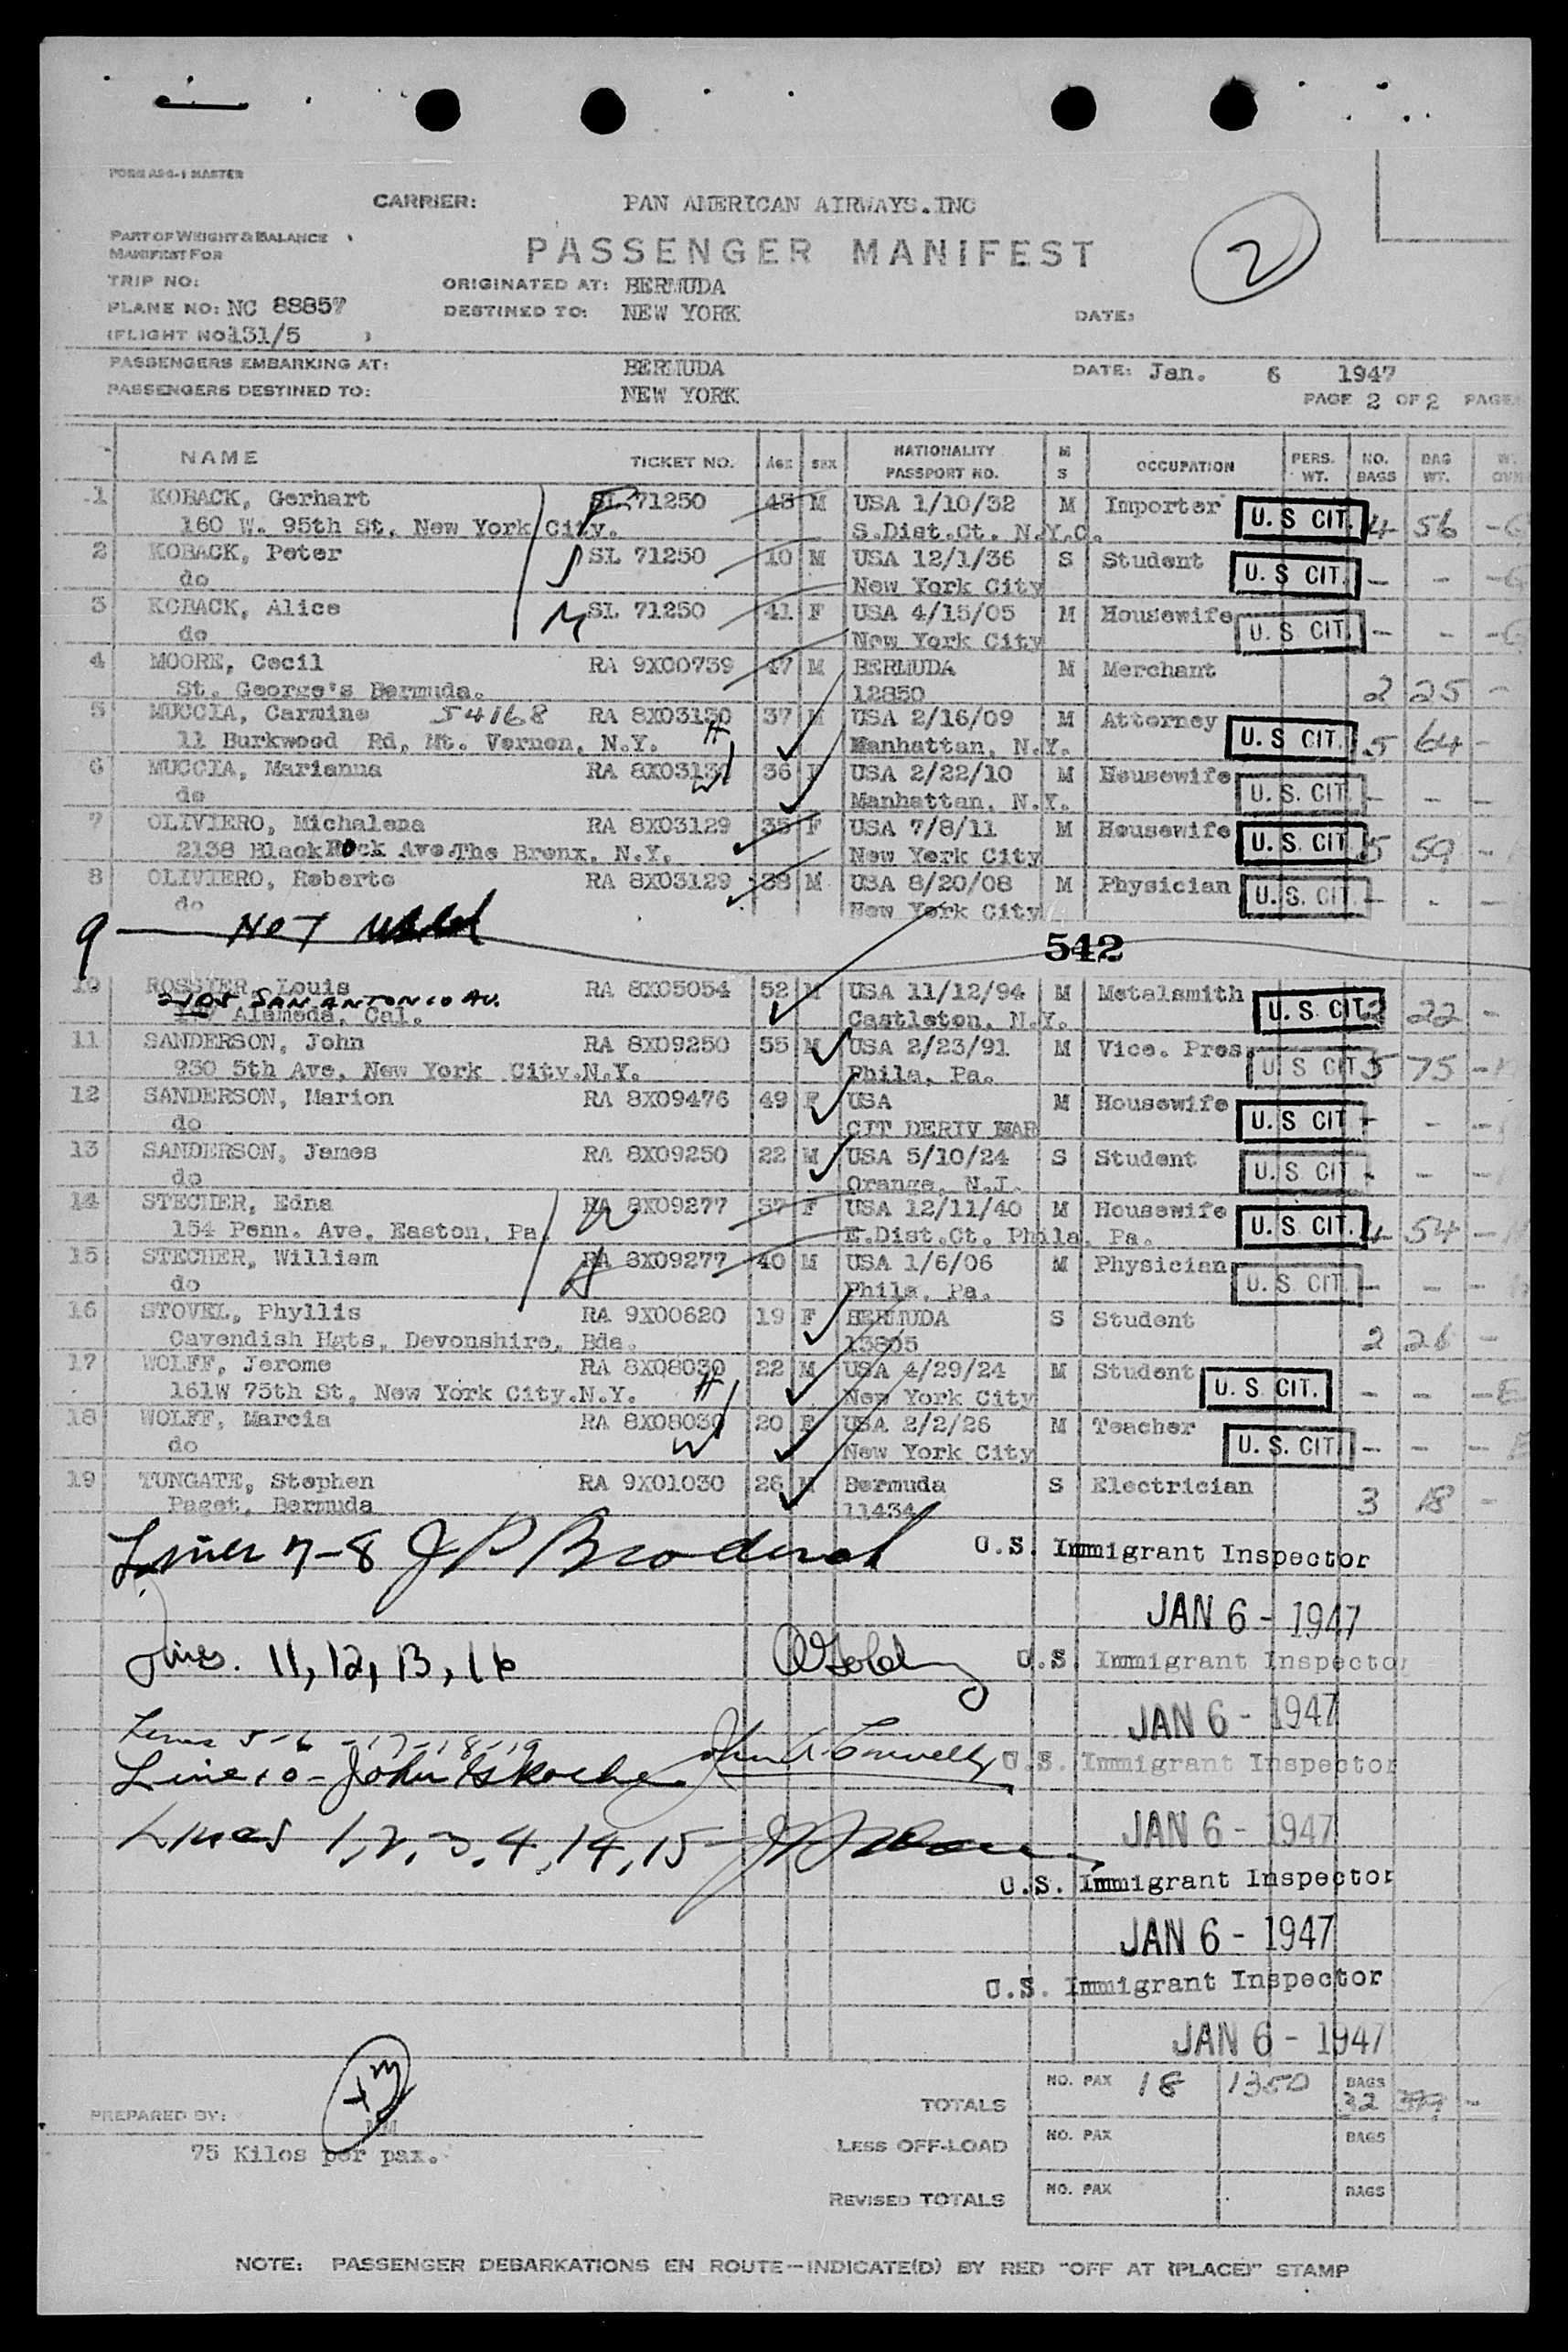 FORM ASG-1 MASTER
CARRIER: PAN AMERICAN AIRWAYS.INC
PART OF WEIGHT & BALANCE
MANIFEST FOR
PASSENGER MANIFEST
2
TRIP NO: ORIGINATED AT: BERMUDA
PLANE NO: NC 88857 DESTINED TO: NEW YORK DATE:
(FLIGHT NO 131/5 )
PASSENGERS EMBARKING AT: BERMUDA DATE: Jan. 6 1947
PASSENGERS DESTINED TO: NEW YORK PAGE 2 OF 2 PAGES
NAME TICKET NO. AGE SEX NATIONALITY PASSPORT NO. M S OCCUPATION PERS. WT. NO. BAGS BAG WT.
1 KOBACK, Gerhart SL 71250 45 M USA 1/10/32 M Importer U. S CIT. 4 56 -
160 W. 95th St, New York City. S.Dist.Ct. N.Y.C.
2 KOBACK, Peter SL 71250 10 M USA 12/1/36 S Student U. S CIT. - - -
do New York City
3 KOBACK, Alice M SL 71250 41 F USA 4/15/05 M Housewife U. S CIT. - - -
do New York City
4 MOORE, Cecil RA 9X00739 47 M BERMUDA M Merchant 2 25 -
St. George's Bermuda. 12850
5 MUCCIA, Carmine 54168 RA 8X03130 37 M USA 2/16/09 M Attorney U. S CIT. 5 64 -
11 Burkwood Rd, Mt. Vernon, N.Y. H Manhattan, N.Y.
6 MUCCIA, Marianna RA 8X03130 36 F USA 2/22/10 M Housewife U. S. CIT. - - -
do W Manhattan, N.Y.
7 OLIVIERO, Michalena RA 8X03129 35 F USA 7/8/11 M Housewife U. S CIT. 5 59 -
2138 BlackRock Ave.The Bronx, N.Y. New York City
8 OLIVIERO, Roberto RA 8X03129 38 M USA 8/20/08 M Physician U. S. CIT. - - -
do New York City
9 NOT Used
542
10 ROSSTER, Louis RA 8X05054 52 M USA 11/12/94 M Metalsmith U. S. CIT. 2 22 -
2105 SAN ANTONIO AV.
Alameda, Cal. Castleton, N.Y.
11 SANDERSON, John RA 8X09250 55 M USA 2/23/91 M Vice. Pres. U. S CIT 5 75 -
930 5th Ave, New York City.N.Y. Phila, Pa.
12 SANDERSON, Marion RA 8X09476 49 F USA M Housewife U. S. CIT - - -
do CIT DERIV MAR
13 SANDERSON, James RA 8X09250 22 M USA 5/10/24 S Student U. S. CIT - - -
do Orange, N.J.
14 STECHER, Edna W RA 8X09277 37 F USA 12/11/40 M Housewife U. S. CIT. 4 54 -
154 Penn. Ave, Easton, Pa. E.Dist.Ct. Phila, Pa.
15 STECHER, William H RA 8X09277 40 M USA 1/6/06 M Physician U. S. CIT. - - -
do Phila, Pa.
16 STOVEL, Phyllis RA 9X00620 19 F BERMUDA S Student 2 26 -
Cavendish Hgts, Devonshire, Bda. 13805
17 WOLFF, Jerome RA 8X08030 22 M USA 4/29/24 M Student U. S. CIT. - - -
161W 75th St, New York City.N.Y. H New York City
18 WOLFF, Marcia RA 8X08030 20 F USA 2/2/26 M Teacher U. S. CIT - - -
do W New York City
19 TUNGATE, Stephen RA 9X01030 26 M Bermuda S Electrician 3 18 -
Paget, Bermuda 11434
Lines 7-8 J P Broderick U.S. Immigrant Inspector
JAN 6 - 1947
Lines. 11, 12, 13, 16 U.S. Immigrant Inspector
JAN 6 - 1947
Lines 5-6-17-18-19 U.S. Immigrant Inspector
Line 10 - John
JAN 6 - 1947
Lines 1, 2, 3, 4, 14, 15
U.S. Immigrant Inspector
JAN 6 - 1947
U.S. Immigrant Inspector
JAN 6 - 1947
TOTALS NO. PAX 18 1350 BAGS 32 399 -
PREPARED BY: MM
LESS OFF-LOAD NO. PAX BAGS
75 Kilos per pax.
REVISED TOTALS NO. PAX BAGS
NOTE: PASSENGER DEBARKATIONS EN ROUTE—INDICATE(D) BY RED "OFF AT (PLACE)" STAMP